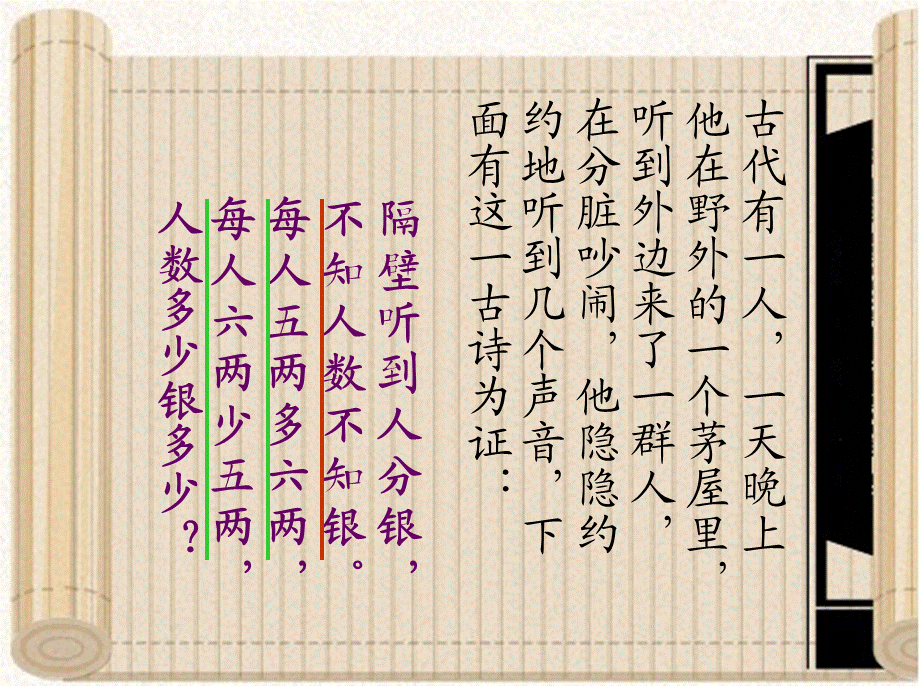 古代有一人，一天晚上
他在野外的一个茅屋里，
听到外边来了一群人，
在分脏吵闹，他隐隐约
约地听到几个声音，下
面有这一古诗为证：
隔壁听到人分银，
不知人数不知银。
每人五两多六两，
每人六两少五两，
人数多少银多少？